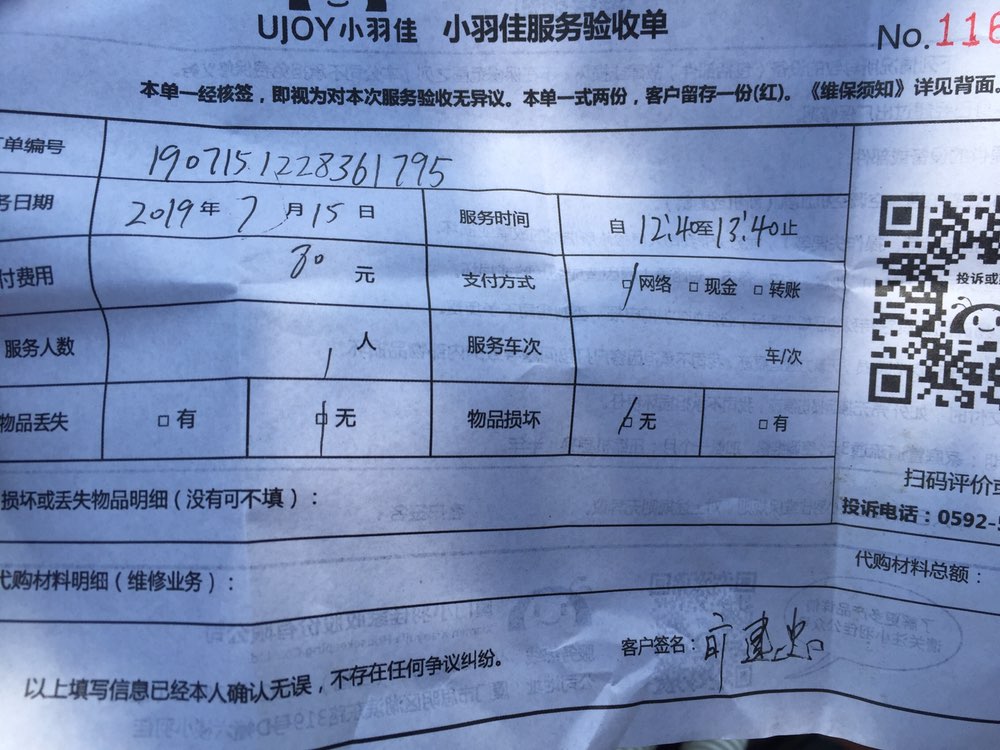 UJOY小羽佳 小羽佳服务验收单
No.116
本单一经核签，即视为对本次服务验收无异议。本单一式两份，客户留存一份(红)。《维保须知》详见背面。
订单编号 1907151228361795
务日期 2019年7月15日 服务时间 自12:40至13:40止
付费用 80元 支付方式 网络 现金 转账
服务人数 1人 服务车次 车/次
物品丢失 有 无 物品损坏 无 有
投诉或
扫码评价或
投诉电话：0592-5
损坏或丢失物品明细（没有可不填）：
代购材料明细（维修业务）：
代购材料总额：
以上填写信息已经本人确认无误，不存在任何争议纠纷。
客户签名：